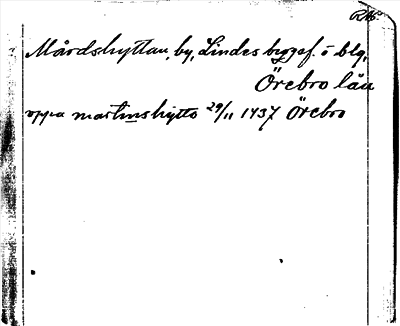 RAP
Mårdshyttan, by, Lindes bergsf. o blg,
Örebro län
oppa martinshytto 29/11 1437 Örebro